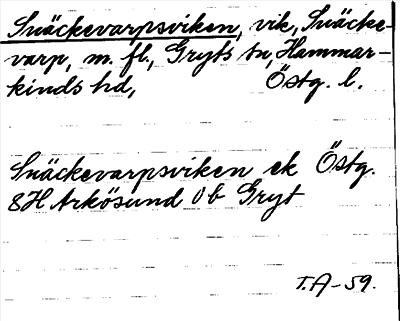 Snäckevarpsviken, vik, Snäcke-
varp, m. fl., Gryts sn, Hammar-
kinds hd, Östg. l.
Snäckevarpsviken ek Östg.
8H Arkösund 0b Gryt
T.A-59.